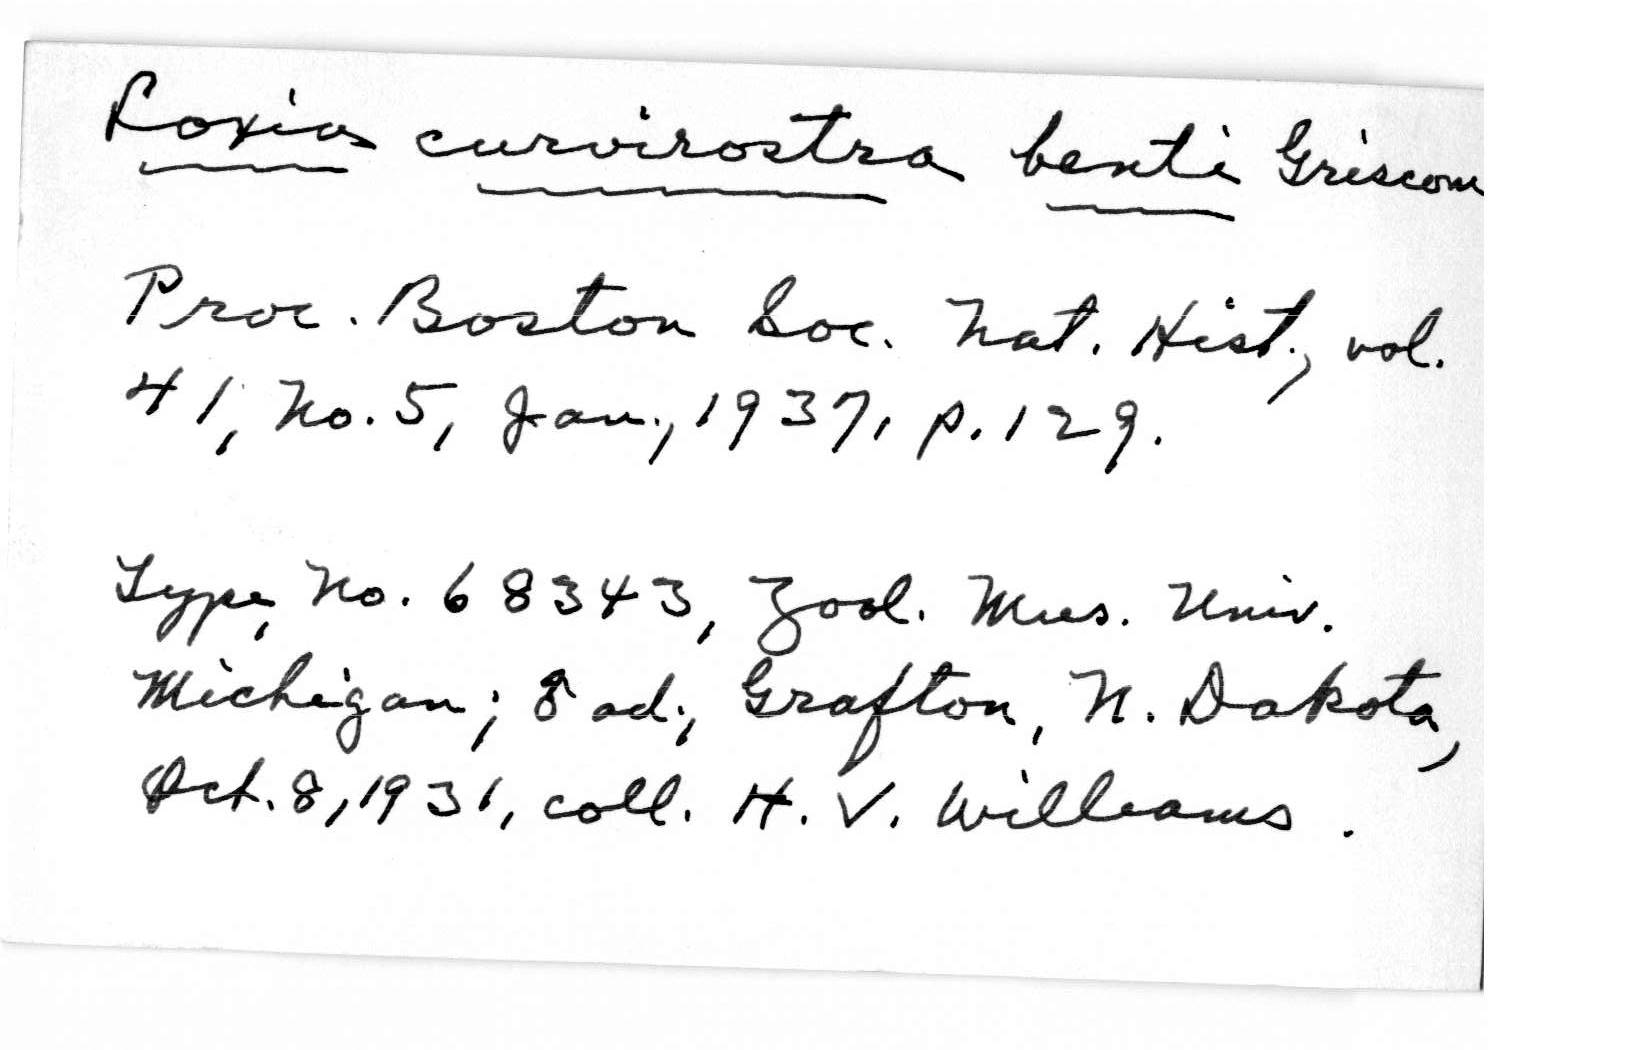 Loxia curvirostra benti Griscom
Proc. Boston Soc. Nat. Hist., vol.
41, No. 5, Jan., 1937, p. 129.
Type, No. 68343, Zool. Mus. Univ.
Michigan; ♂ ad., Grafton, N. Dakota,
Oct. 8, 1931, coll. H. V. Williams.